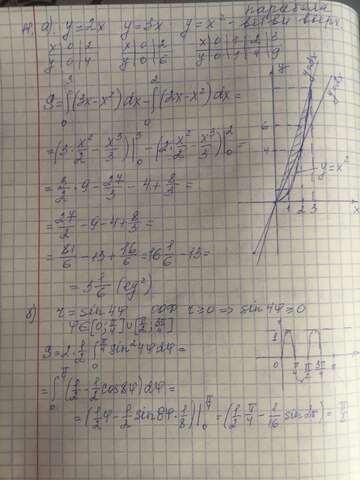 а) y=2x   y=3x   y=x² - парабола ветви вверх
x | 0 | 2   x | 0 | 2   x | 0 | 1 | 2 | 3
y | 0 | 4   y | 0 | 6   y | 0 | 1 | 4 | 9
S = ∫₀³ (3x-x²)dx - ∫₀² (2x-x²)dx =
= (3·x²/2 - x³/3)|₀³ - (2·x²/2 - x³/3)|₀² =
= 3/2·9 - 27/3 - 4 + 8/3 =
= 27/2 - 9 - 4 + 8/3 =
= 81/6 - 13 + 16/6 = 16 1/6 - 13 =
= 3 1/6 (ед²)
y=x²
1 2 3 x
б) r = sin4φ   r ≥ 0 => sin4φ ≥ 0
φ∈[0; π/4]∪[π/2; 3π/4]
S = 2·1/2 ∫₀^(π/4) sin²4φdφ =
= ∫₀^(π/4) (1/2 - 1/2cos8φ)dφ =
= (1/2φ - 1/2 sin8φ·1/8)|₀^(π/4) = (1/2·π/4 - 1/16 sin2π) = π/8